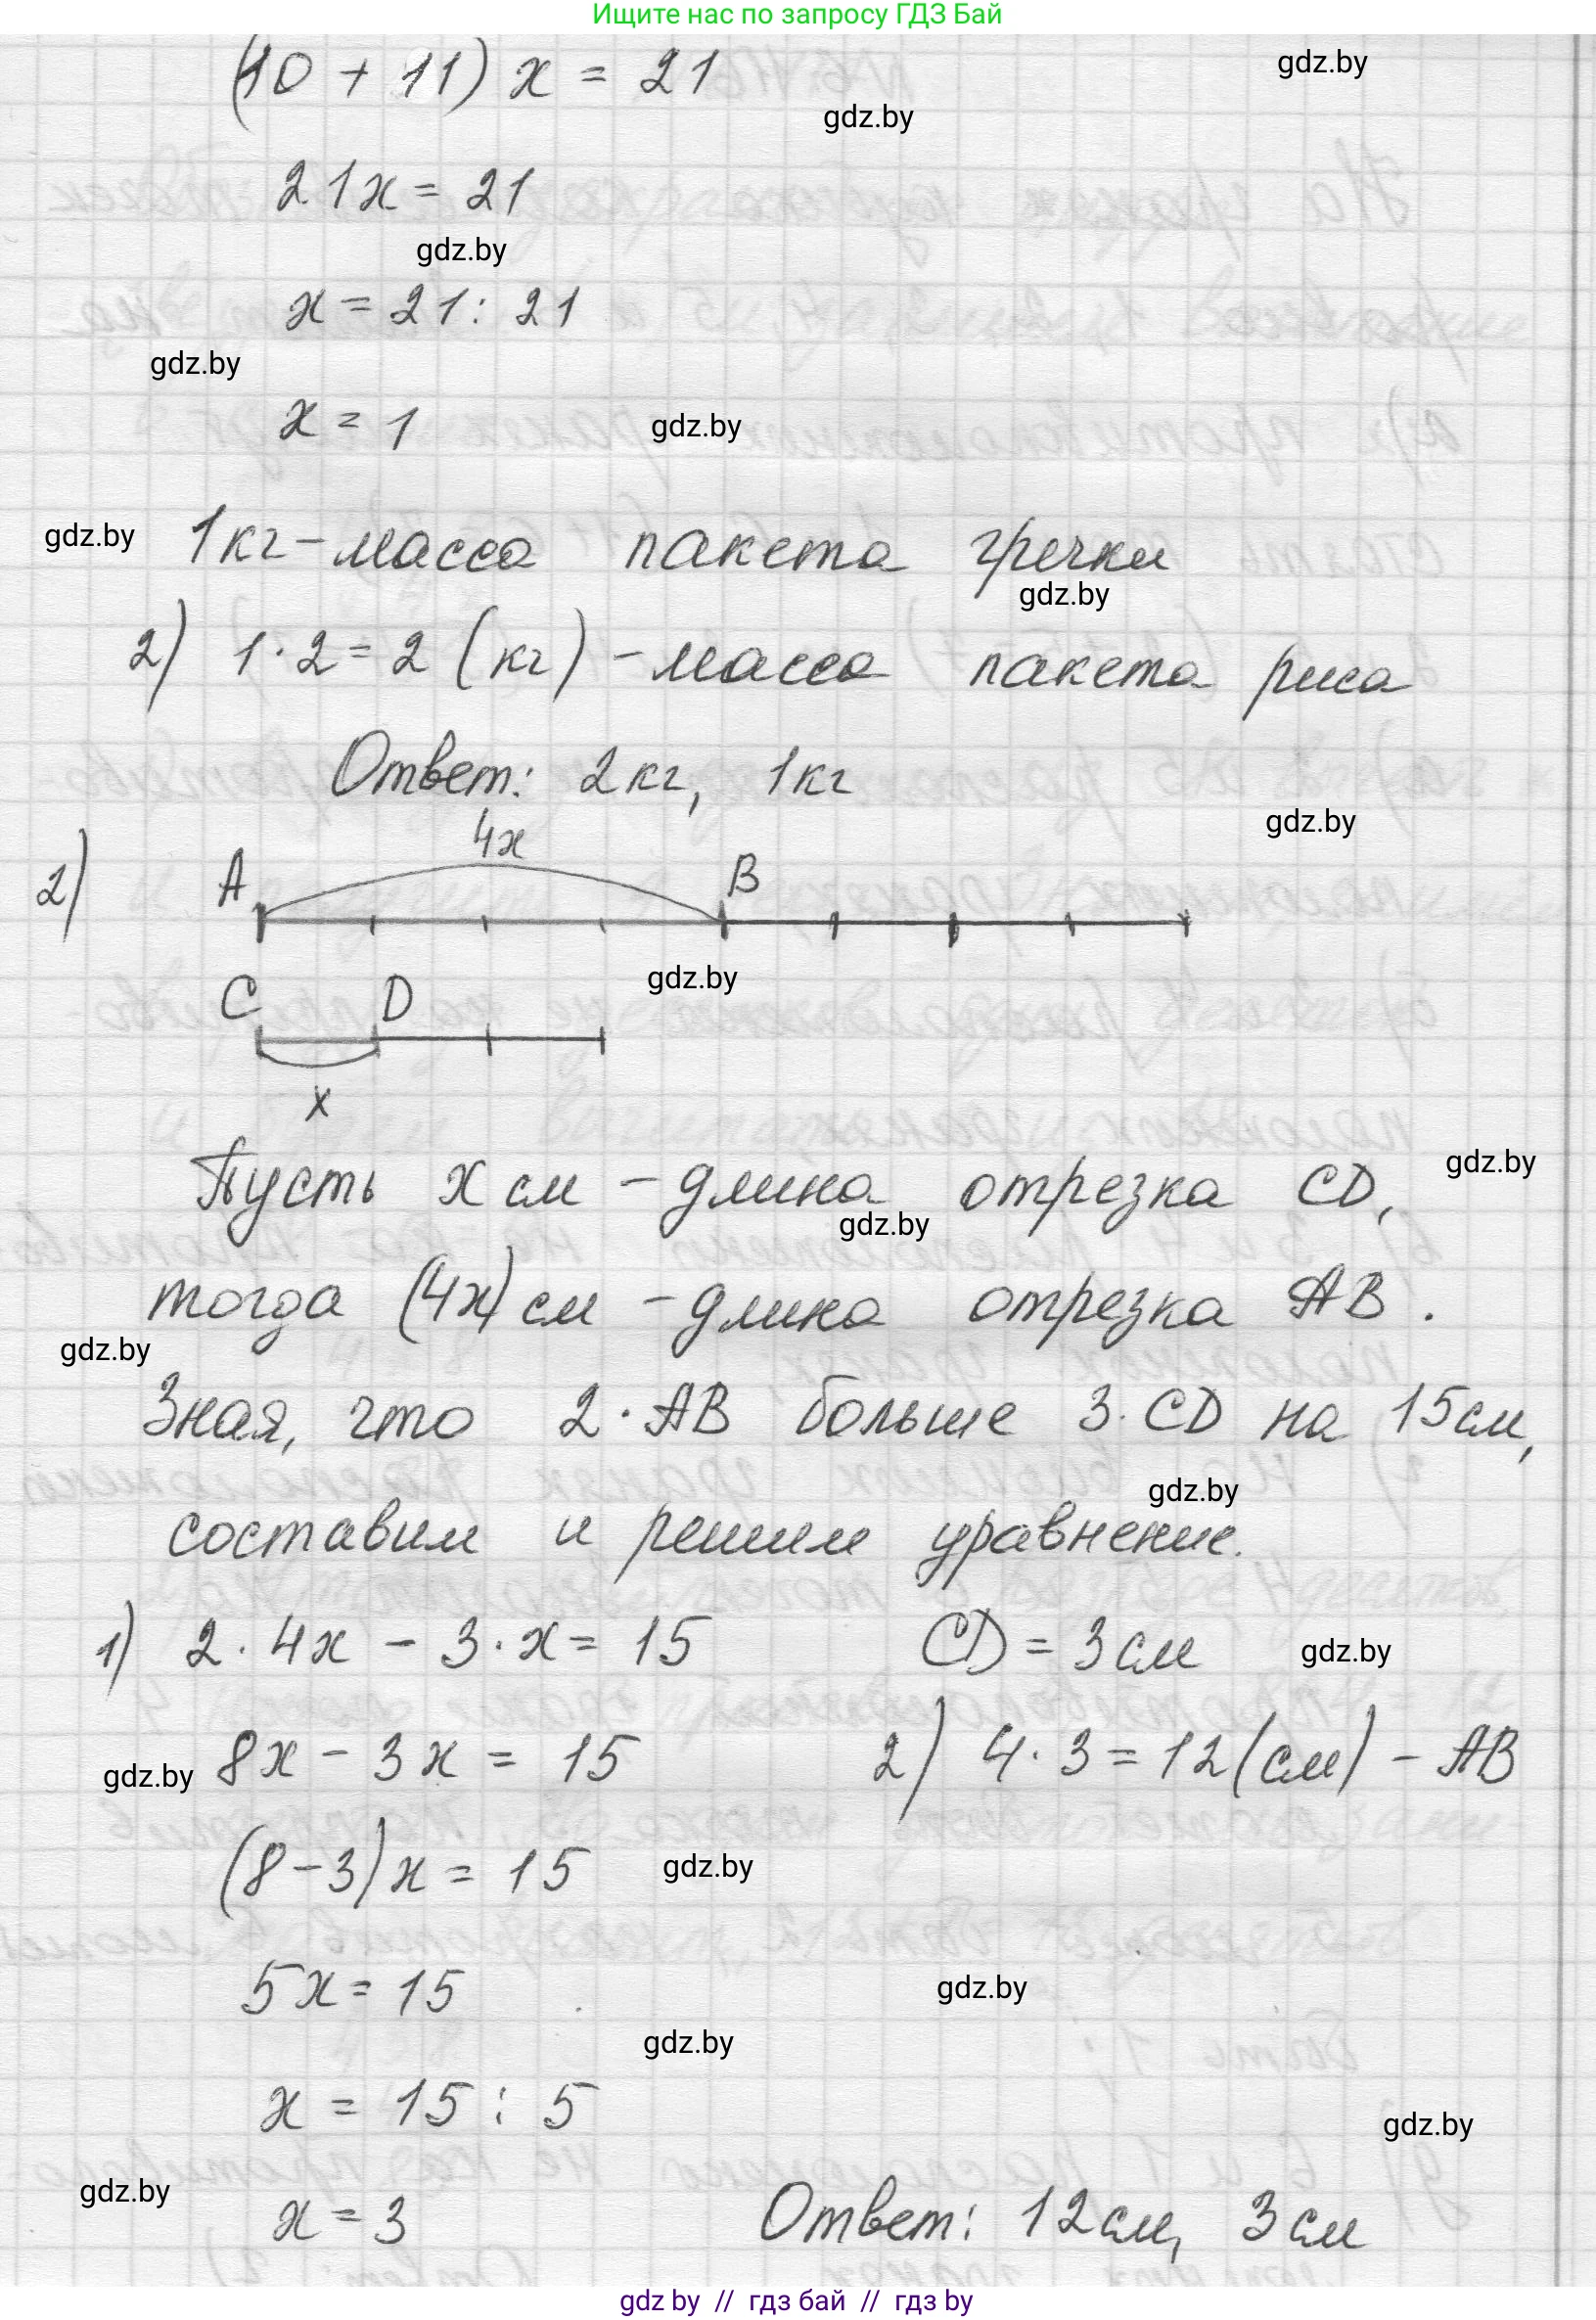 Ищите нас по запросу ГДЗ Бай
(10 + 11) x = 21
gdz.by
gdz.by
21x = 21
gdz.by
x = 21 : 21
gdz.by
x = 1
gdz.by
gdz.by
1кг - масса пакета гречки
gdz.by
2) 1 · 2 = 2 (кг) - масса пакета риса
Ответ: 2кг, 1кг
gdz.by
4x
2) A B
gdz.by
C D
x
Пусть x см - длина отрезка CD,
gdz.by
gdz.by
тогда (4x) см - длина отрезка AB.
gdz.by
Зная, что 2 · AB больше 3 · CD на 15см,
gdz.by
составим и решим уравнение.
1) 2 · 4x - 3 · x = 15 CD = 3 см
gdz.by
8x - 3x = 15 2) 4 · 3 = 12 (см) - AB
gdz.by
(8 - 3) x = 15
gdz.by
5x = 15
gdz.by
gdz.by
x = 15 : 5
gdz.by
gdz.by
x = 3 Ответ: 12 см, 3 см
gdz by // гдз бай // гдз by